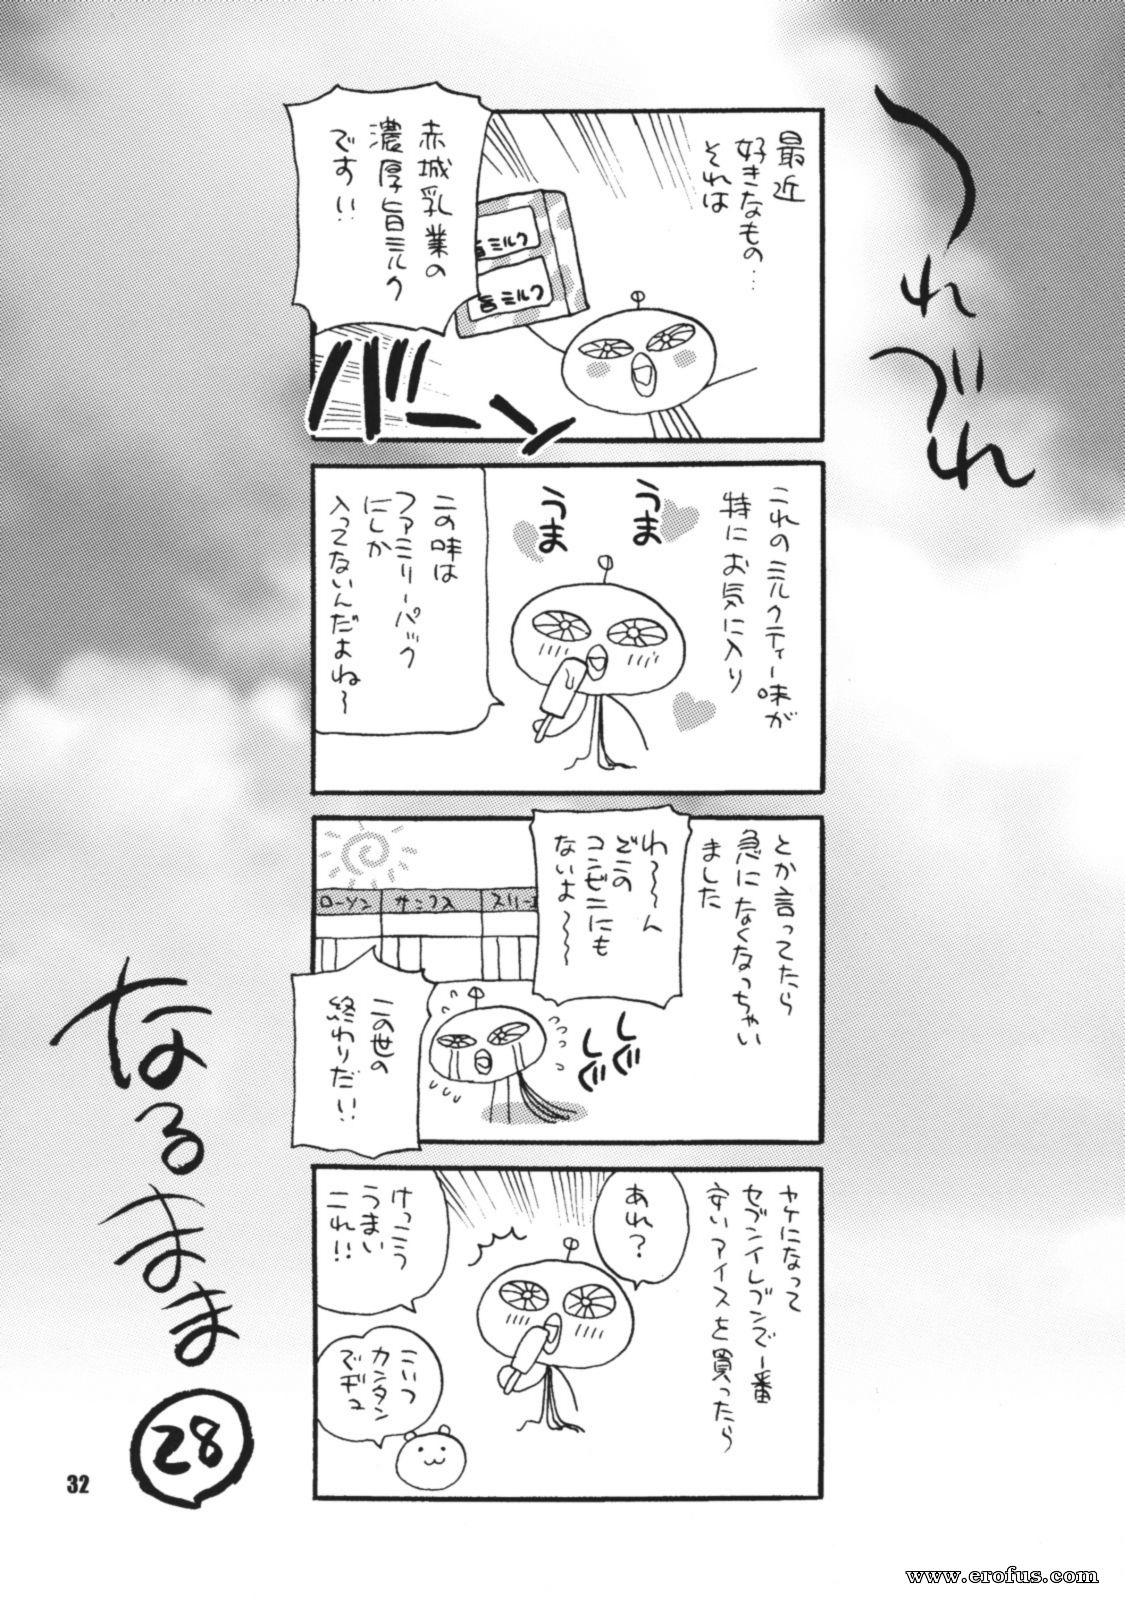 つれづれ
最近
好きなもの…
それは
赤城乳業の
濃厚旨ミルク
です!!
旨ミルク
旨ミルク
バーン
これのミルクティー味が
特にお気に入り
うま
うま
この味は
ファミリーパック
にしか
入ってないんだよね〜
とか言ってたら
急になくなっちゃい
ました
わ〜〜ん
どこの
コンビニにも
ないよ〜〜
ローソン
サンクス
スリーエ
しぐ
しぐ
この世の
終わりだ!!
ヤケになって
セブンイレブンで一番
安いアイスを買ったら
あれ?
けっこう
うまい
コレ!!
こいつ
カンタン
でヂュ
なるままま
28
32
www.erofus.com